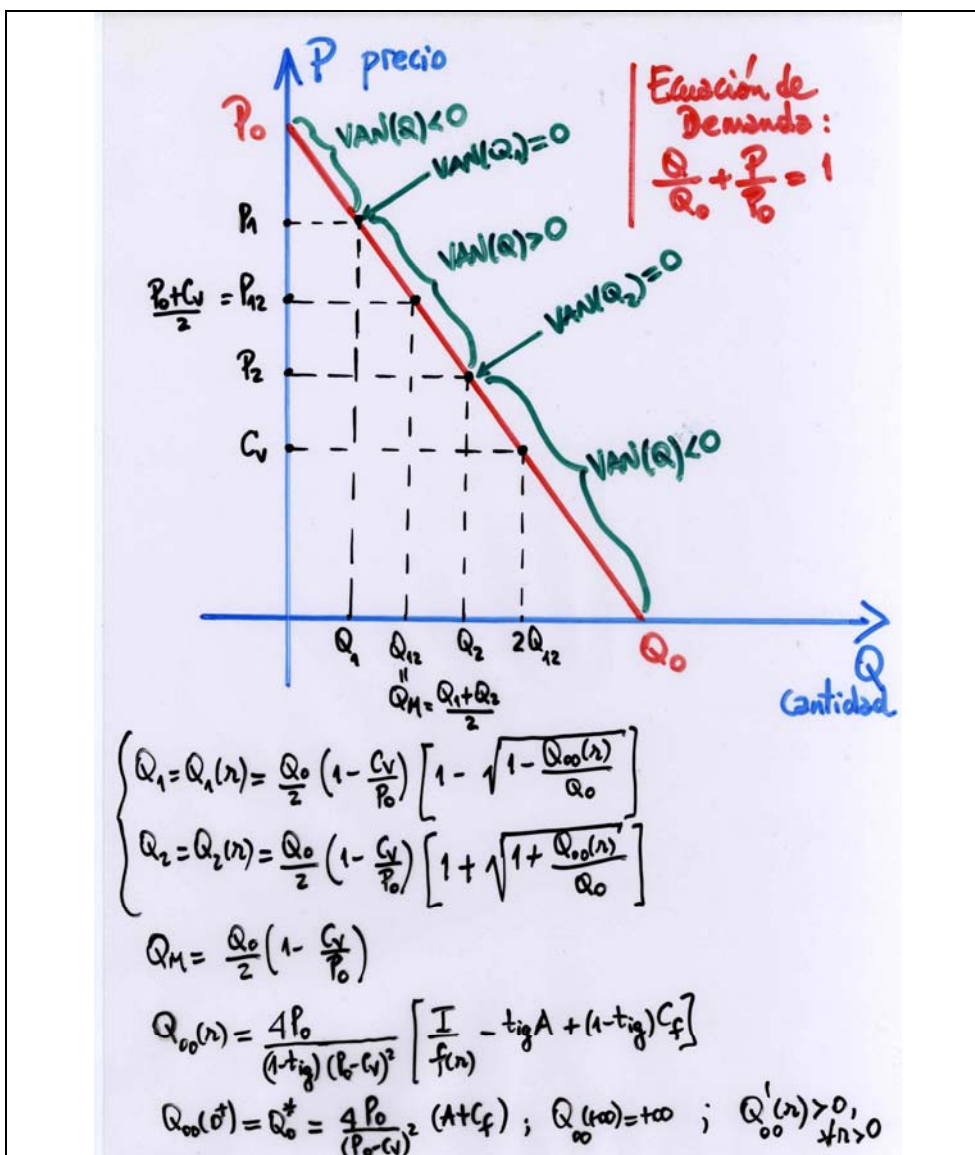 P precio
Ecuación de
Demanda:
Q/Q₀ + P/P₀ = 1
P₀
VAN(Q)<0
VAN(Q₁)=0
P₁
VAN(Q)>0
VAN(Q₂)=0
(P₀+Cᵥ)/2 = P₁₂
P₂
VAN(Q)<0
Cᵥ
Q₁ Q₁₂ Q₂ 2Q₁₂ Q₀ Q
cantidad
"
Q_M = (Q₁+Q₂)/2
Q₁ = Q₁(r) = Q₀/2 (1 - Cᵥ/P₀) [1 - √(1 - Q₀₀(r)/Q₀)]
Q₂ = Q₂(r) = Q₀/2 (1 - Cᵥ/P₀) [1 + √(1 + Q₀₀(r)/Q₀)]
Q_M = Q₀/2 (1 - Cᵥ/P₀)
Q₀₀(r) = 4P₀/((1-t_ig)(P₀-Cᵥ)²) [I/f(r) - t_ig A + (1-t_ig)C_f]
Q₀₀(0⁺) = Q₀* = 4P₀/(P₀-Cᵥ)² (A+C_f) ; Q₀₀(+∞)=+∞ ; Q₀₀'(r)>0, ∀r>0